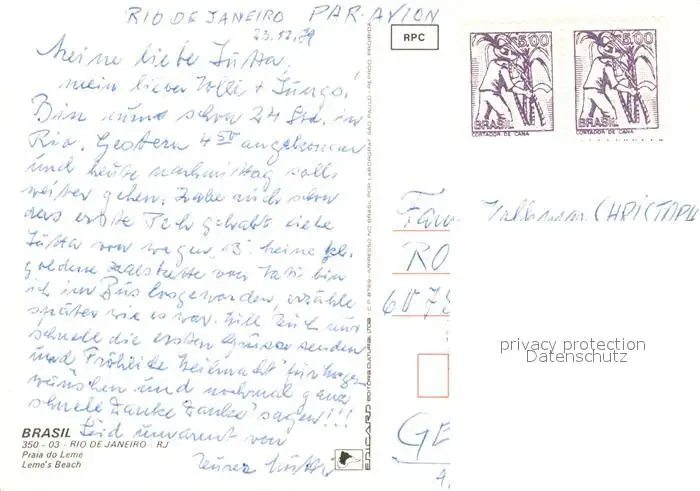 RIO DE JANEIRO PAR AVION
23.12.79
Meine liebe Jutta.
mein lieber Volli + Jungs!
Bin nun schon 24 Std. in
Rio. Gestern 4 50 angekommen
und heute nachmittag solls
weiter gehen. Habe auch schon
das erste Pech gehabt liebe
Jutta von wegen "B". Meine
goldene Halskette von Vati bin
ich im Bus losgeworden, erzähle
später wie es war. Will Euch nur
schnell die ersten Grüsse senden
und Fröhliche Weihnacht für
wünschen und nochmal ganz
schnell Danke Danke sagen!!!
Seid umarmt von
Eurer Mutti
BRASIL
350 - 03 - RIO DE JANEIRO - RJ
Praia do Leme
Leme's Beach
EDICARD EDITORA CULTURAL LTDA
IMPRESSO NO BRASIL POR LABORGRAF SÃO PAULO - REPROD. PROIBIDA
RPC
5,00
BRASIL
CORTADOR DE CANA
5,00
BRASIL
CORTADOR DE CANA
Fam. CHRISTOPH
RO
607
GE
privacy protection
Datenschutz